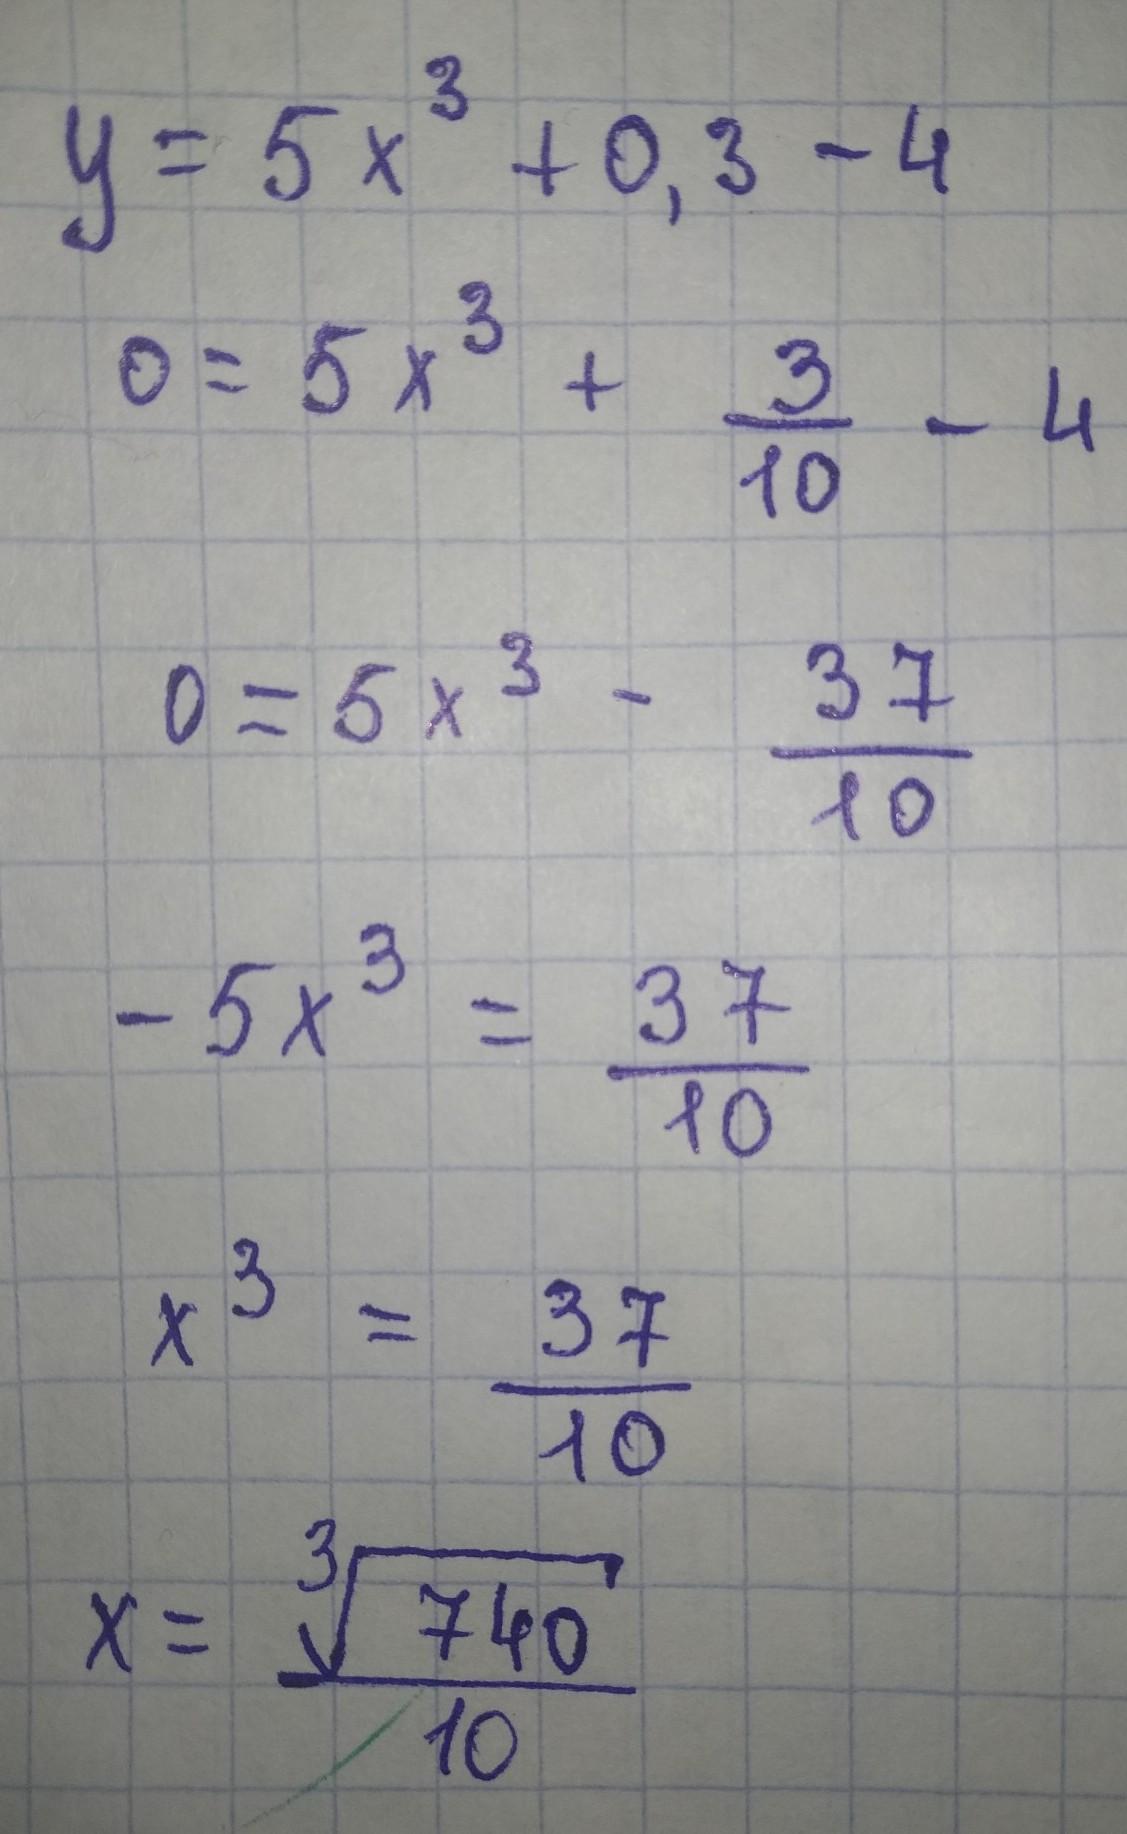 y = 5x³ + 0,3 - 4
0 = 5x³ + 3/10 - 4
0 = 5x³ - 37/10
-5x³ = 37/10
x³ = 37/10
x = ∛740/10